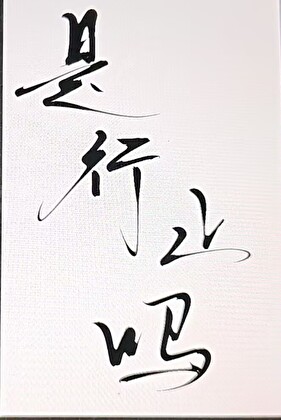 是行止吗